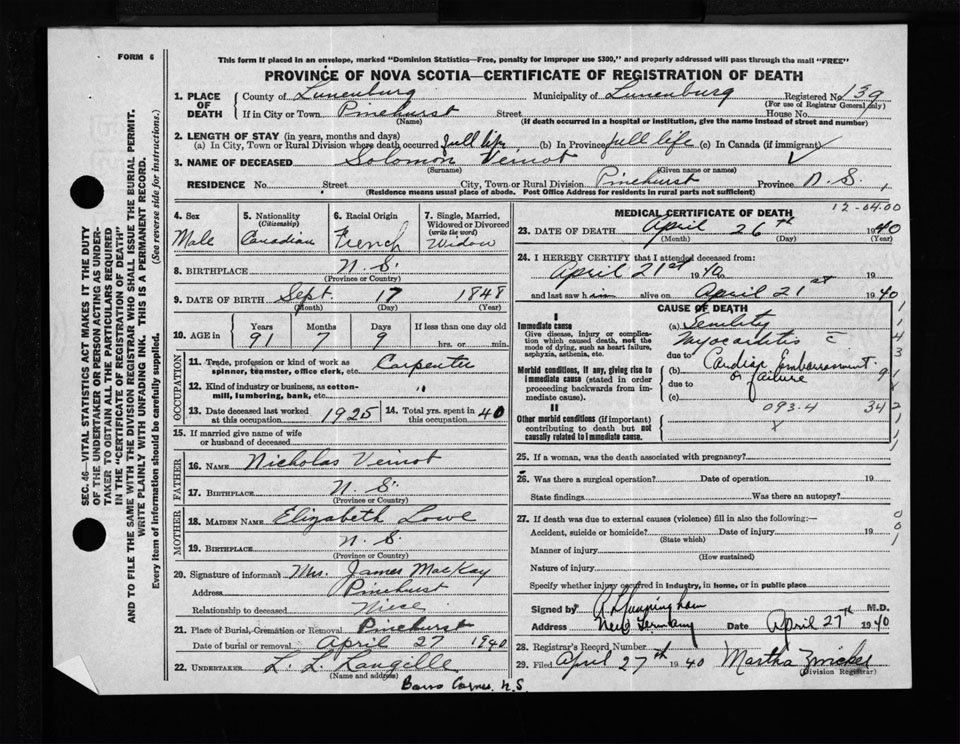 FORM 6
This form if placed in an envelope, marked "Dominion Statistics—Free, penalty for improper use $300," and properly addressed will pass through the mail "FREE"
PROVINCE OF NOVA SCOTIA—CERTIFICATE OF REGISTRATION OF DEATH
1. PLACE OF DEATH
County of Lunenburg Municipality of Lunenburg Registered No. 139
(For use of Registrar General only)
If in City or Town Pinehurst Street House No.
(Name) (If death occurred in a hospital or institution, give the name instead of street and number)
2. LENGTH OF STAY (in years, months and days)
(a) In City, Town or Rural Division where death occurred full life (b) In Province full life (c) In Canada (if immigrant)
3. NAME OF DECEASED Solomon Veinot
(Surname) (Given name or names)
RESIDENCE No. Street City, Town or Rural Division Pinehurst Province N. S.
(Residence means usual place of abode. Post Office Address for residents in rural parts not sufficient)
4. Sex
Male
5. Nationality
(Citizenship)
Canadian
6. Racial Origin
French
7. Single, Married, Widowed or Divorced
(write the word)
Widow
8. BIRTHPLACE N. S.
(Province or Country)
9. DATE OF BIRTH Sept. 17 1848
(Month) (Day) (Year)
10. AGE in
Years Months Days If less than one day old
91 7 9 hrs. or min.
OCCUPATION
11. Trade, profession or kind of work as
spinner, teamster, office clerk, etc. Carpenter
12. Kind of industry or business, as cotton-
mill, lumbering, bank, etc. "
13. Date deceased last worked
at this occupation 1925
14. Total yrs. spent in
this occupation 40
15. If married give name of wife
or husband of deceased
FATHER
16. Name Nicholas Veinot
17. BIRTHPLACE N. S.
(Province or Country)
MOTHER
18. MAIDEN NAME Elizabeth Lowe
19. BIRTHPLACE N. S.
(Province or Country)
20. Signature of informant Mrs. James MacKay
Address Pinehurst
Relationship to deceased Niece
21. Place of Burial, Cremation or Removal Pinehurst
Date of burial or removal April 27 1940
22. UNDERTAKER L. L. Langille
(Name and address)
Barss Corner, N.S
12-04.00
MEDICAL CERTIFICATE OF DEATH
23. DATE OF DEATH April 26th 1940
(Month) (Day) (Year)
24. I HEREBY CERTIFY that I attended deceased from:
April 21st 1940 19
and last saw him alive on April 21st 1940
CAUSE OF DEATH
I
Immediate cause
Give disease, injury or complication which caused death, not the mode of dying, such as heart failure, asphyxia, asthenia, etc.
(a) Senility
Myocarditis c̄
due to
Morbid conditions, if any, giving rise to immediate cause (stated in order proceeding backwards from immediate cause).
(b) Cardiac Embarrassment
due to or failure
(c)
093.4 34
II
Other morbid conditions (if important) contributing to death but not causally related to immediate cause.
x
25. If a woman, was the death associated with pregnancy?
26. Was there a surgical operation? Date of operation 19
State findings Was there an autopsy?
27. If death was due to external causes (violence) fill in also the following:—
Accident, suicide or homicide? Date of injury 19
(State which)
Manner of injury
(How sustained)
Nature of injury
Specify whether injury occurred in industry, in home, or in public place
Signed by M.D.
Address New Germany Date April 27th 1940
28. Registrar's Record Number
29. Filed April 27th 1940 Martha Zwicker
(Division Registrar)
SEC. 46—VITAL STATISTICS ACT MAKES IT THE DUTY
OF THE UNDERTAKER OR PERSON ACTING AS UNDER-
TAKER TO OBTAIN ALL THE PARTICULARS REQUIRED
IN THE "CERTIFICATE OF REGISTRATION OF DEATH"
AND TO FILE THE SAME WITH THE DIVISION REGISTRAR WHO SHALL ISSUE THE BURIAL PERMIT.
WRITE PLAINLY WITH UNFADING INK. THIS IS A PERMANENT RECORD.
Every item of information should be carefully supplied. (See reverse side for instructions.)